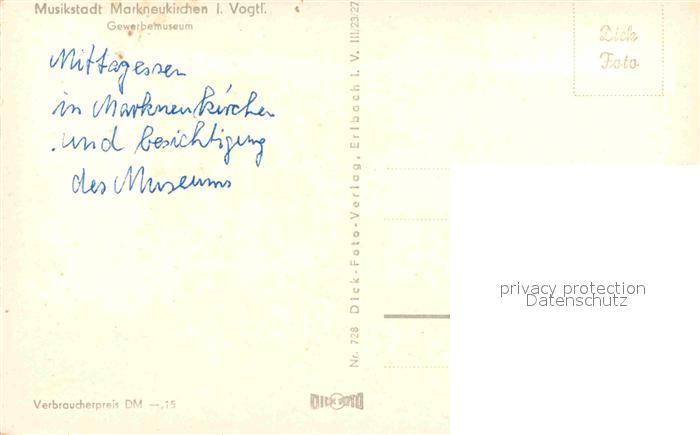 Musikstadt Markneukirchen i. Vogtl.
Gewerbemuseum
Mittagessen
in Markneukirchen
und besichtigung
des Museums
Nr. 728 Dick-Foto-Verlag, Erlbach i. V. III/23/27
Dick
Foto
privacy protection
Datenschutz
Verbraucherpreis DM —,15
DICK FOTO